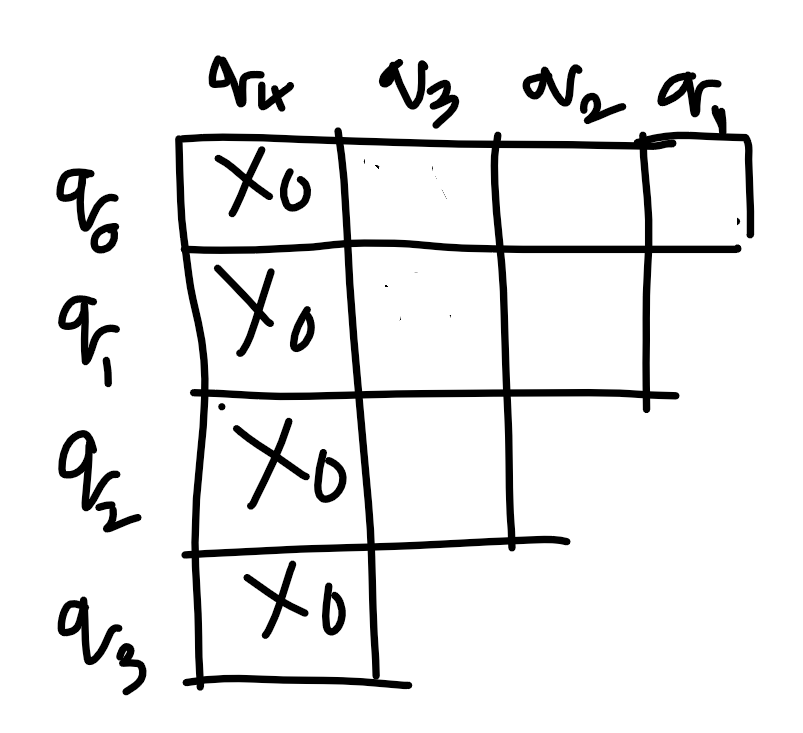 q₃ q₂ q₁
q₀ X₀
q₁ X₀
q₂ X₀
q₃ X₀